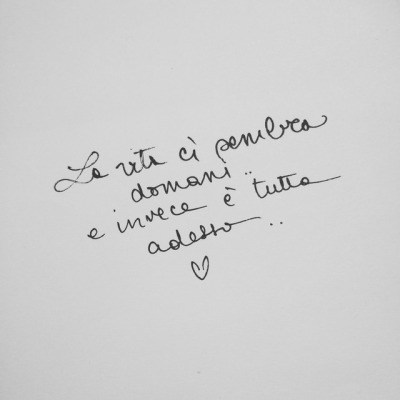 La vita ci sembra
domani..
e invece è tutta
adesso..
♡